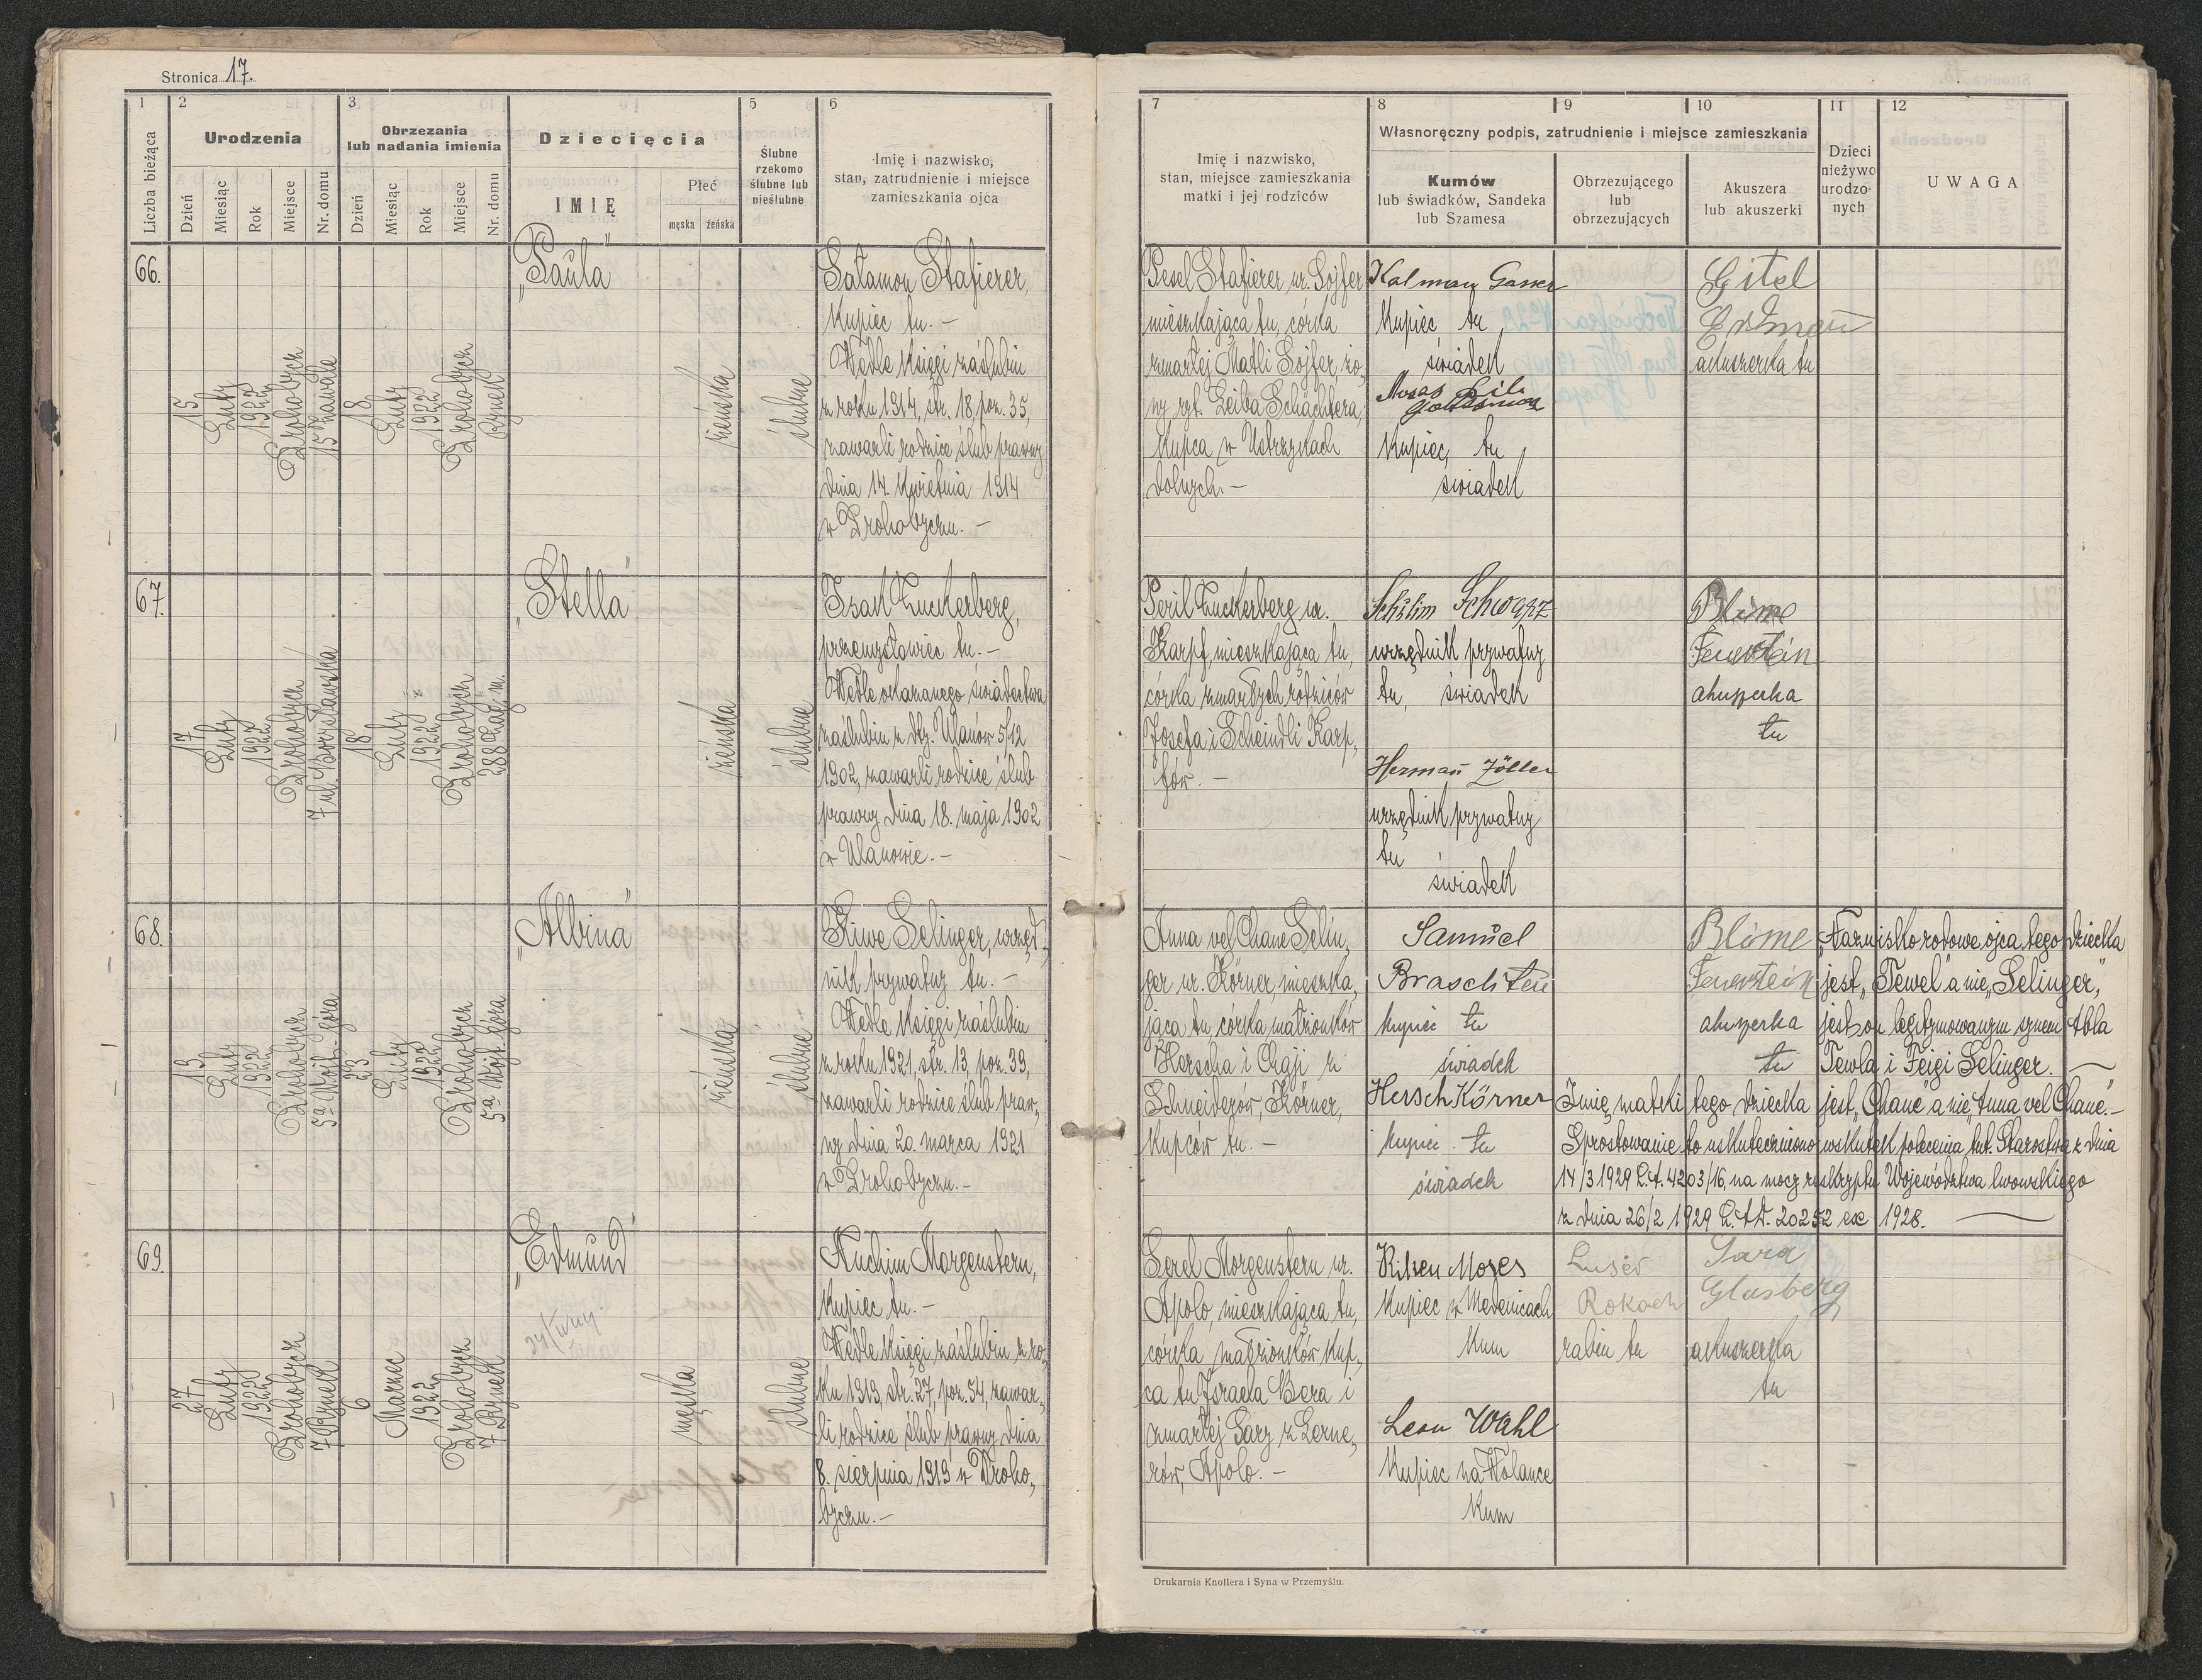 Stronica 17.
1
2
3
5
6
Liczba bieżąca
Urodzenia
Obrzezania
lub nadania imienia
Dziecięcia
Ślubne
rzekomo
ślubne lub
nieślubne
Imię i nazwisko,
stan, zatrudnienie i miejsce
zamieszkania ojca
Dzień
Miesiąc
Rok
Miejsce
Nr. domu
Dzień
Miesiąc
Rok
Miejsce
Nr. domu
IMIĘ
Płeć
męska
żeńska
7
8
9
10
11
12
Imię i nazwisko,
stan, miejsce zamieszkania
matki i jej rodziców
Własnoręczny podpis, zatrudnienie i miejsce zamieszkania
Kumów
lub świadków, Sandeka
lub Szamesa
Obrzezującego
lub
obrzezujących
Akuszera
lub akuszerki
Dzieci
nieżywo
urodzo-
nych
UWAGA
66.
15
Luty
1922
Drohobycz
18
Luty
1922
Drohobycz
Rynek
„Paula"
żeńska
ślubne
Salamon Stafierer,
Kupiec tu.-
Wedle Księgi zaślubin
z roku 1914, str. 18, poz. 35,
zawarli rodzice ślub prawny
dnia 14. Kwietnia 1914
w Drohobyczu.-
Pesel Stafierer ur. Sojfer
mieszkająca tu, córka
zmarłej Matli Sojfer, żo„
ny ryt. Leiba Schächtera,
Kupca w Ustrzykach
dolnych.-
Kalman Gasser
Kupiec tu
świadek
Kupiec, tu
świadek
Gitel
Erdman
akuszerka tu
67.
17
Luty
1922
Drohobycz
7 ul. Borysławska
18
Luty
1922
Drohobycz
288 Zag. m.
„Stella"
żeńska
ślubne
Isak Zuckerberg,
przemysłowiec tu.-
Wedle okazanego świadectwa
zaślubin z dtg. Ulanów 5/12
1902, zawarli rodzice ślub
prawny dnia 18. maja 1902
w Ulanowie.-
Peril Zuckerberg ur.
Karpf, mieszkająca tu,
córka zmarłych rodziców
Josefa i Scheindli Karp„
fów.-
Schulim Schwarz
urzędnik prywatny
tu, świadek
Hermann Zöller
urzędnik prywatny
tu
świadek
Blime
Feuerstein
akuszerka
tu
68.
19
Luty
1922
Drohobycz
5a Wójt. góra
23
Luty
1922
Drohobycz
5a Wójt. góra
„Albina"
żeńska
ślubne
Kiwe Selinger, urzęd„
nik prywatny tu.-
Wedle Księgi zaślubin
z roku 1921, str. 13, poz. 39,
zawarli rodzice ślub praw„
ny dnia 20. marca 1921
w Drohobyczu.-
Anna vel Chane Selin„
ger ur. Körner, mieszka„
jąca tu, córka małżonków
Herscha i Chaji z
Schneiderów, Körner,
Kupców tu.-
Samuel
Braschten
kupiec tu
świadek
Hersch Körner
kupiec tu
świadek
Blime
Feuerstein
akuszerka
tu
„Nazwisko rodowe ojca tego dziecka
jest „Tewel" a nie „Selinger",
jest on legitymowanym synem Abla
Tewla i Feigi Selinger.-
Imię matki tego dziecka jest „Chane" a nie „Anna vel Chane".-
Sprostowanie to uskuteczniono wskutek polecenia tut. Starostwa z dnia
14/3 1929 L.A. 4203/16, na mocy reskryptu Województwa lwowskiego
z dnia 26/2 1929 L.AD. 20252 ex 1928.-
69.
27
Luty
1922
Drohobycz
7 Rynek
6
Marzec
1922
Drohobycz
7 Rynek
„Edmund"
męska
ślubne
Nuchim Morgenstern,
Kupiec tu.-
Wedle Księgi zaślubin z ro„
ku 1919, str. 27, poz. 54, zawar„
li rodzice ślub prawny dnia
8. sierpnia 1919 w Droho„
byczu.-
Serel Morgenstern ur.
Apolo, mieszkająca tu,
córka małżonków Kup„
ca tu Israela Bera i
zmarłej Sary z Lerne„
rów, Apolo.-
Moses
Kupiec w Medenicach
Kum
Leon Wahl
Kupiec na Wolance
Kum
Luser
Rokach
rabin tu
Sara
Glasberg
akuszerka
tu
Drukarnia Knollera i Syna w Przemyślu.